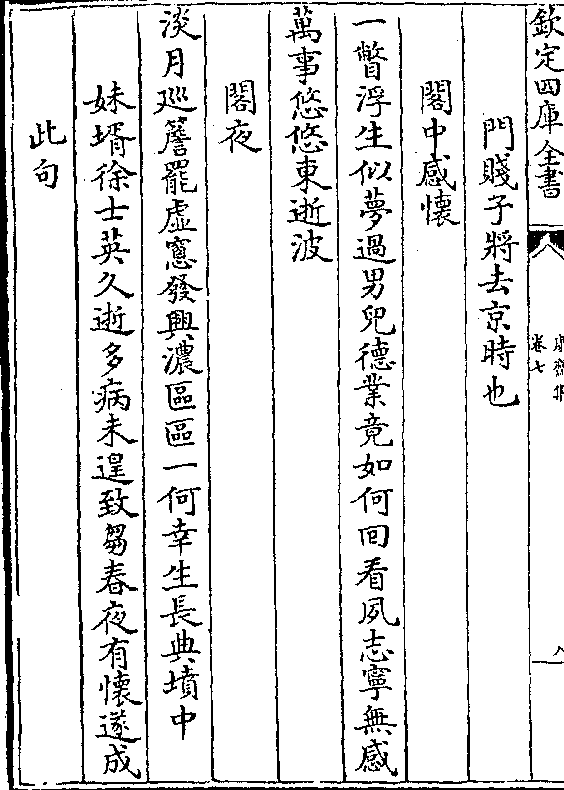 欽定四庫全書
卷七
門賤子將去京時也
閣中感懷
一瞥浮生似夢過男兒德業竟如何回看夙志寧無感
萬事悠悠東逝波
閣夜
淡月巡簷罷虛窻發興濃區區一何幸生長典墳中
妹壻徐士英久逝多病未遑致芻春夜有懷遂成
此句